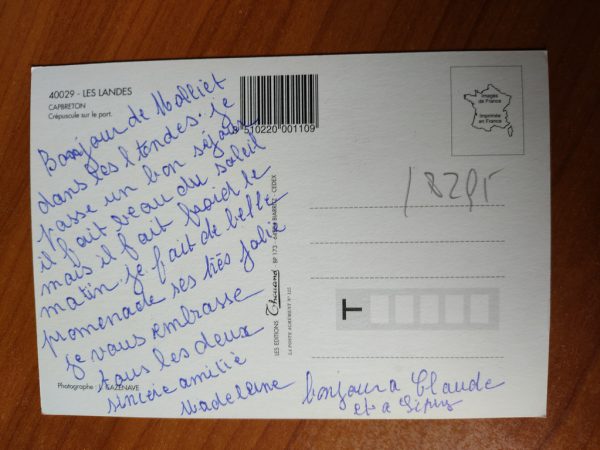 40029 - LES LANDES
CAPBRETON
Crépuscule sur le port.
Bonjour de Molliet
dans les landes. je
passe un bon séjour
il fait beau du soleil
mais il fait froid le
matin. je fait de belle
promenade ses très jolie
je vous embrasse
tous les deux
sincère amitié
Madeleine
Photographe : J. CAZENAVE
510220 001109
LES EDITIONS Thouand BP 173 - BIARRITZ - CEDEX
LA POSTE AGRÉMENT N° 125
Images
de France
Imprimée
en France
18295
T
bonjour a Claude
et a